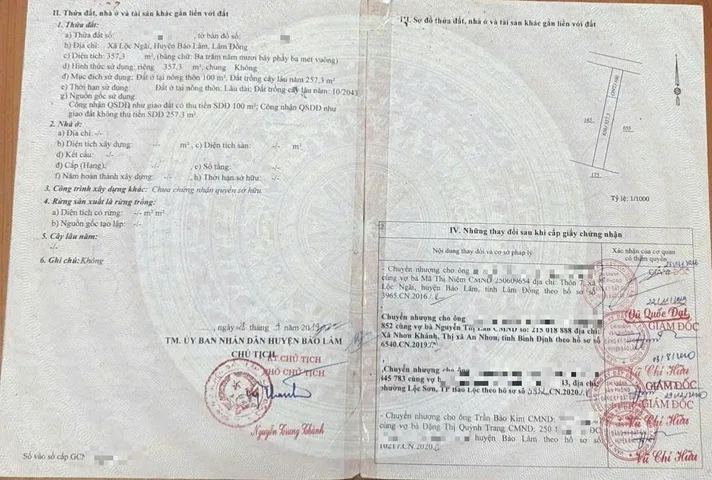 II. Thửa đất, nhà ở và tài sản khác gắn liền với đất
1. Thửa đất:
a) Thửa đất số: , tờ bản đồ số:
b) Địa chỉ: Xã Lộc Ngãi, Huyện Bảo Lâm, Lâm Đồng
c) Diện tích: 357,3 m², (bằng chữ: Ba trăm năm mươi bảy phẩy ba mét vuông)
d) Hình thức sử dụng: riêng 357,3 m², chung Không
đ) Mục đích sử dụng: Đất ở tại nông thôn 100 m². Đất trồng cây lâu năm 257.3 m²
e) Thời hạn sử dụng: Đất ở tại nông thôn: Lâu dài; Đất trồng cây lâu năm: 10/2043
g) Nguồn gốc sử dụng
Công nhận QSDĐ như giao đất có thu tiền SDĐ 100 m²; Công nhận QSDĐ như
giao đất không thu tiền SDĐ 257.3 m²
2. Nhà ở:
a) Địa chỉ: -/-
b) Diện tích xây dựng: -/- m², c) Diện tích sàn: -/- m²
d) Kết cấu: -/-
đ) Cấp (Hạng): -/- e) Số tầng: -/-
f) Năm hoàn thành xây dựng: -/- h) Thời hạn sở hữu: -/-
3. Công trình xây dựng khác: Chưa chứng nhận quyền sở hữu.
4. Rừng sản xuất là rừng trồng:
a) Diện tích có rừng: -/- m² m²
b) Nguồn gốc tạo lập: -/-
5. Cây lâu năm:
-/-
6. Ghi chú: Không
TM. ỦY BAN NHÂN DÂN HUYỆN BẢO LÂM
CHỦ TỊCH
KT. CHỦ TỊCH
PHÓ CHỦ TỊCH
Nguyễn Trung Thành
Số vào sổ cấp GCN
III. Sơ đồ thửa đất, nhà ở và tài sản khác gắn liền với đất
Tỷ lệ: 1/1000
IV. Những thay đổi sau khi cấp giấy chứng nhận
Nội dung thay đổi và cơ sở pháp lý
Xác nhận của cơ quan
có thẩm quyền
- Chuyển nhượng cho ông
cùng vợ bà Mã Thị Niệm CMND 250609654 địa chỉ: Thôn 7, xã
Lộc Ngãi, huyện Bảo Lâm, tỉnh Lâm Đồng theo hồ sơ số
3965.CN.2016
Vũ Quốc Đạt
GIÁM ĐỐC
Chuyển nhượng cho ông
852 cùng vợ bà Nguyễn Thị CMND số: 215 018 888 địa chỉ:
Xã Nhơn Khánh, Thị xã An Nhơn, tỉnh Bình Định theo hồ sơ số
6540.CN.2019
Vũ Chí Hữu
GIÁM ĐỐC
Chuyển nhượng cho ông
845 783 cùng vợ bà 13, địa chỉ:
phường Lộc Sơn, TP Bảo Lộc theo hồ sơ số CN.2020
Vũ Chí Hữu
GIÁM ĐỐC
- Chuyển nhượng cho ông Trần Bảo Kim CMND:
cùng vợ bà Đặng Thị Quỳnh Trang CMND: 250 ĐC
huyện Bảo Lâm theo hồ sơ số
CN.2020
Vũ Chí Hữu